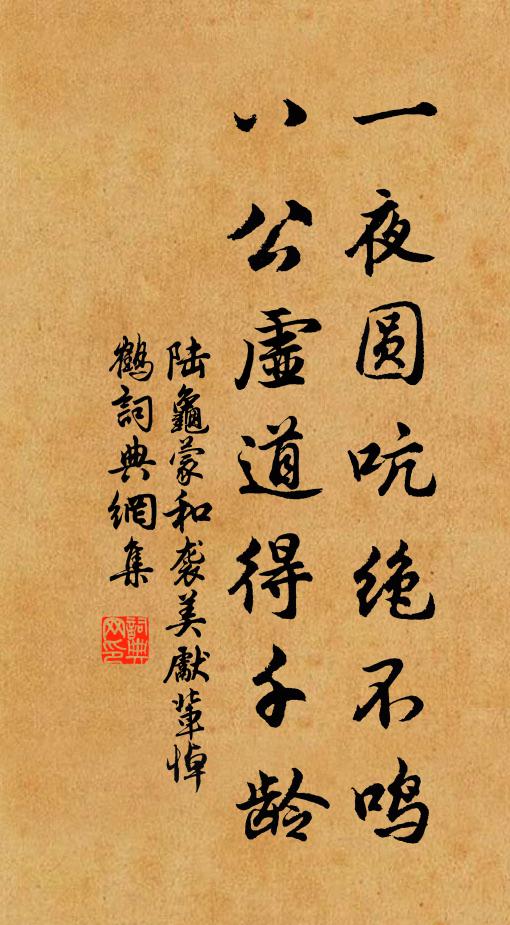 一夜圆吭绝不鸣
八公虚道得千龄
陆龜蒙和袭美獻輩悼
鶴詞典網集
詞典網印